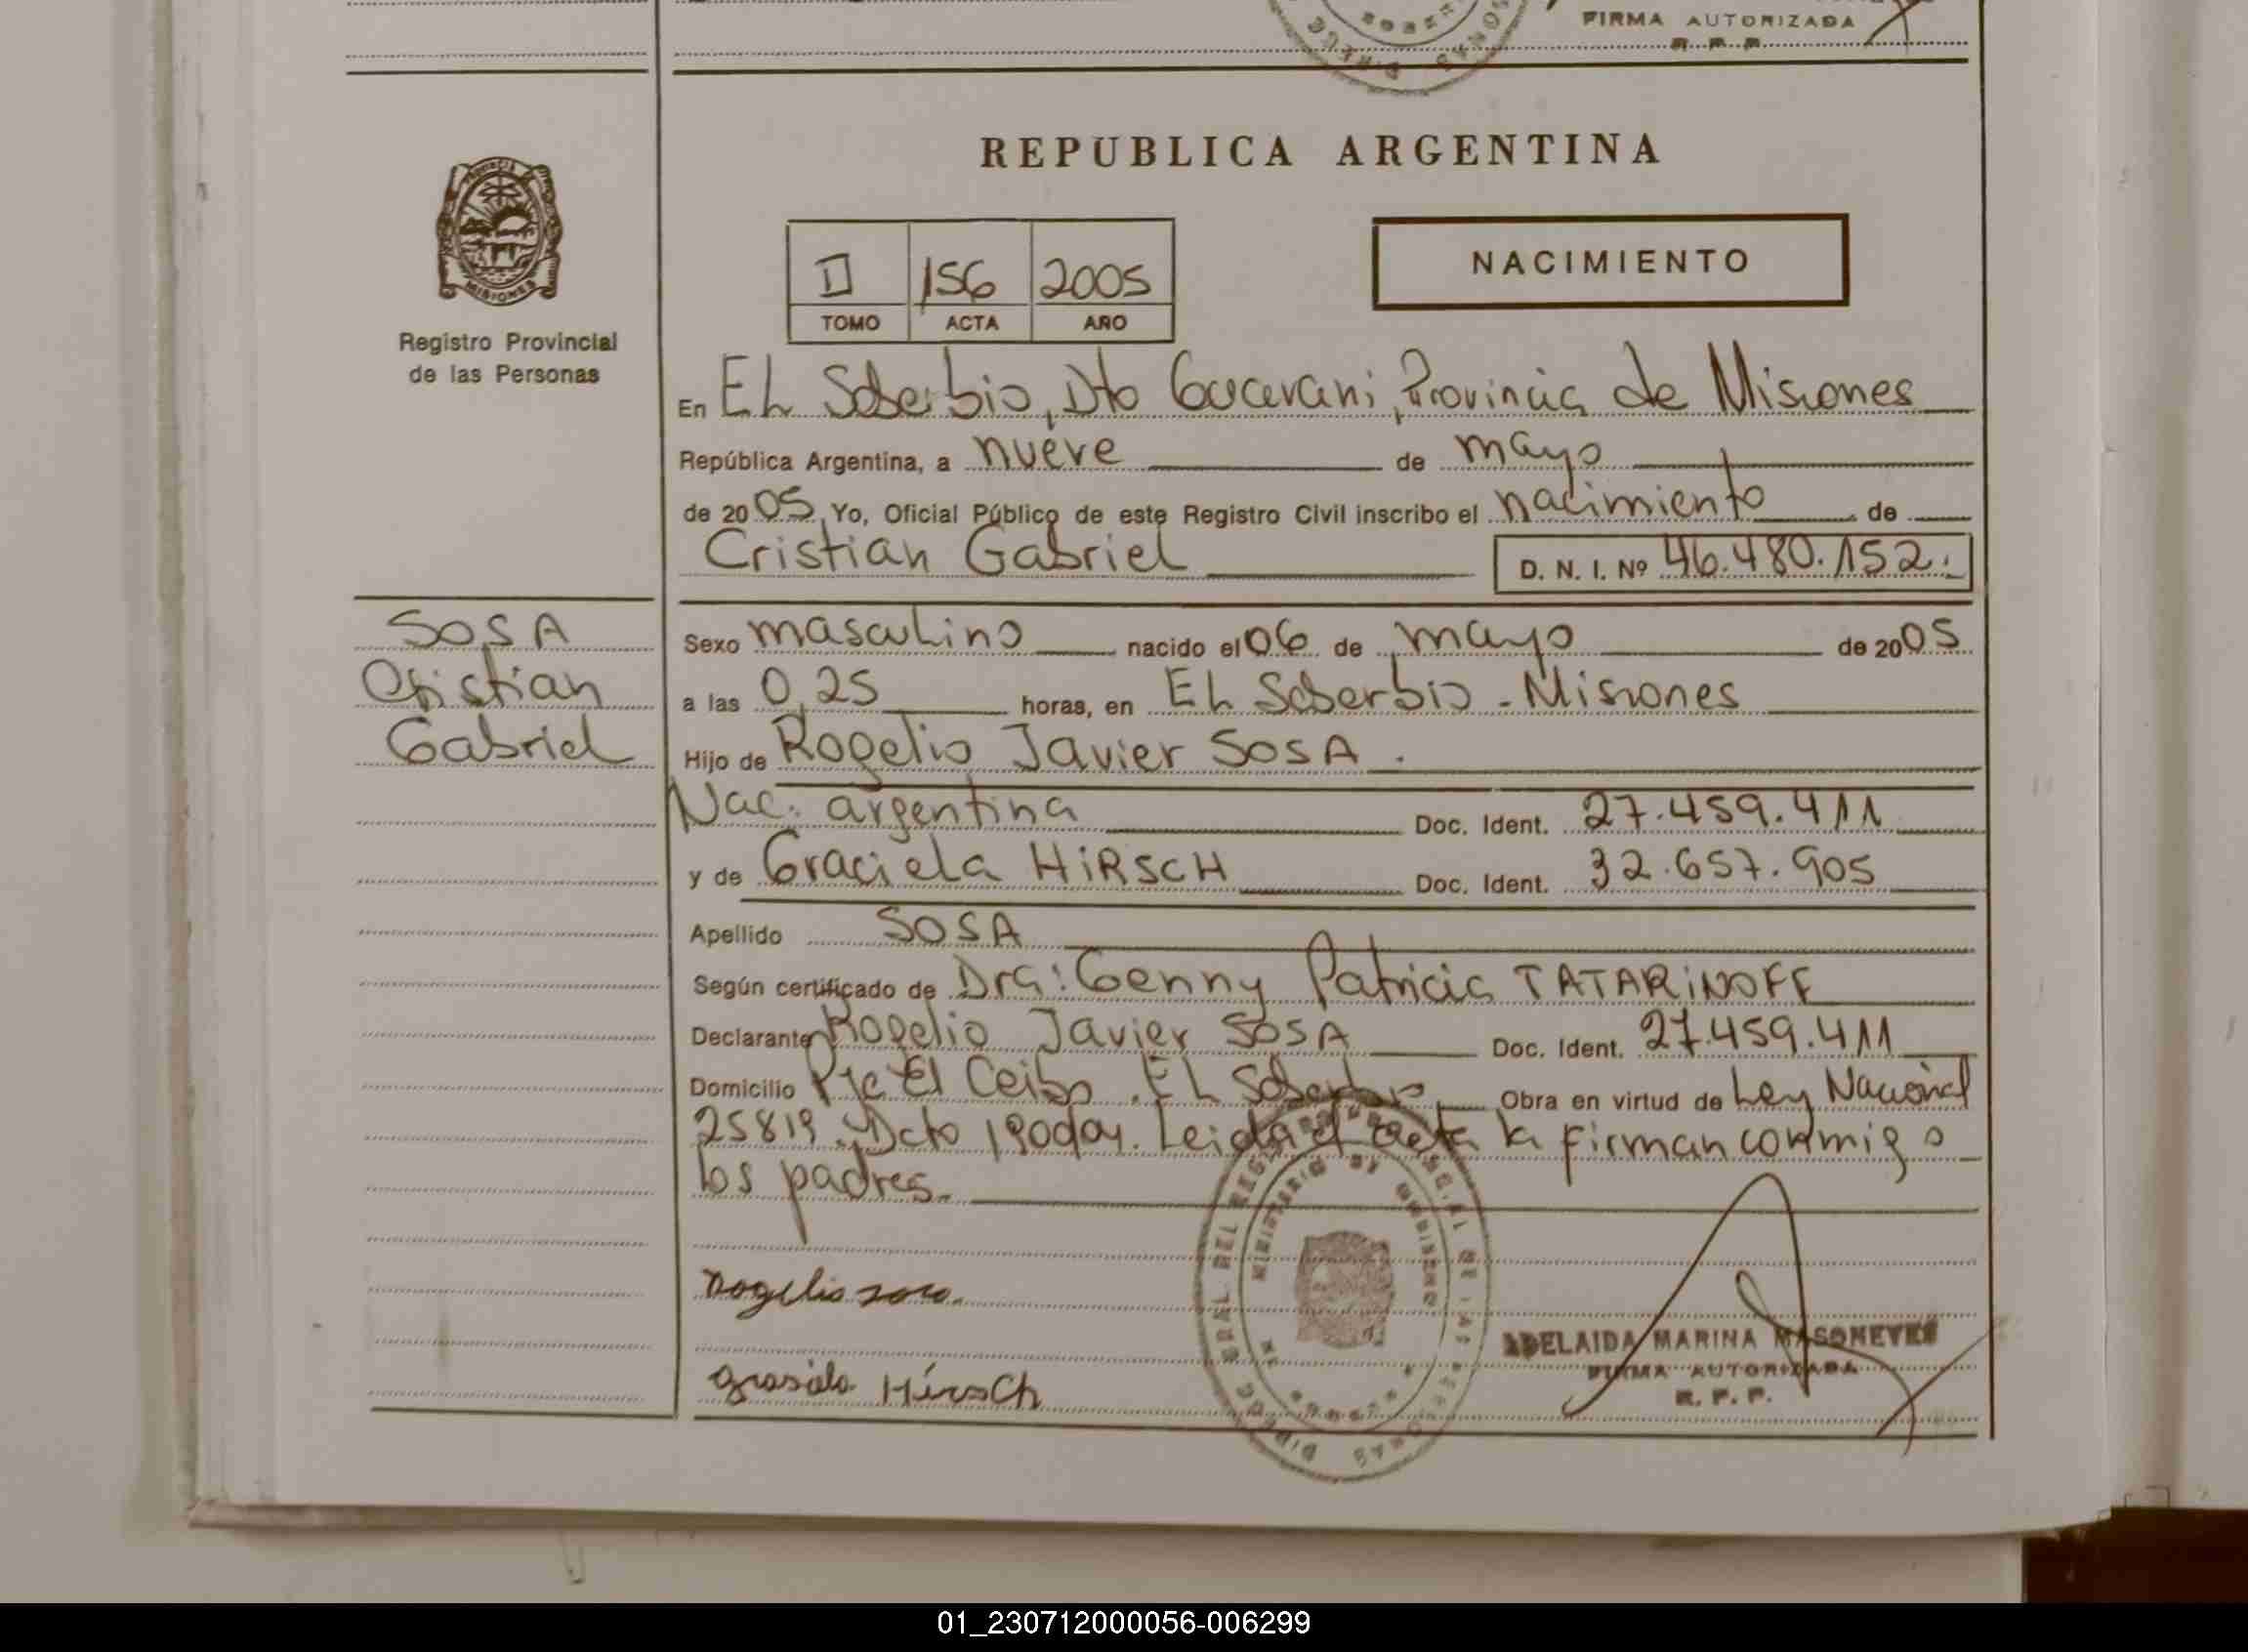 FIRMA AUTORIZADA
R. P. P.
REPUBLICA ARGENTINA
PROVINCIA
MISIONES
Registro Provincial
de las Personas
II 156 2005
TOMO ACTA AÑO
NACIMIENTO
En EL Soberbio, Dto Guarani, Provincia de Misiones
República Argentina, a nueve de mayo
de 2005 Yo, Oficial Público de este Registro Civil inscribo el nacimiento de
Cristian Gabriel D. N. I. Nº 46.480.152.
SOSA
Cristian
Gabriel
Sexo masculino nacido el 06 de mayo de 2005
a las 0,25 horas, en EL Soberbio - Misiones
Hijo de Rogelio Javier SOSA.
Nac. argentina Doc. Ident. 27.459.411
y de Graciela HiRSCH Doc. Ident. 32.657.905
Apellido SOSA
Según certificado de Dra: Genny Patricia TATARiNOFF
Declarante Rogelio Javier SOSA Doc. Ident. 27.459.411
Domicilio Pje El Ceibo. EL Soberbio Obra en virtud de Ley Nacional
25819 y Dcto 190/04. Leida el acta la firman conmigo
los padres.
Rogelio sosa.
grasiela HirsCh
MINISTERIO DE GOBIERNO
ADELAIDA MARINA
FIRMA AUTORIZADA
R. P. P.
01_230712000056-006299